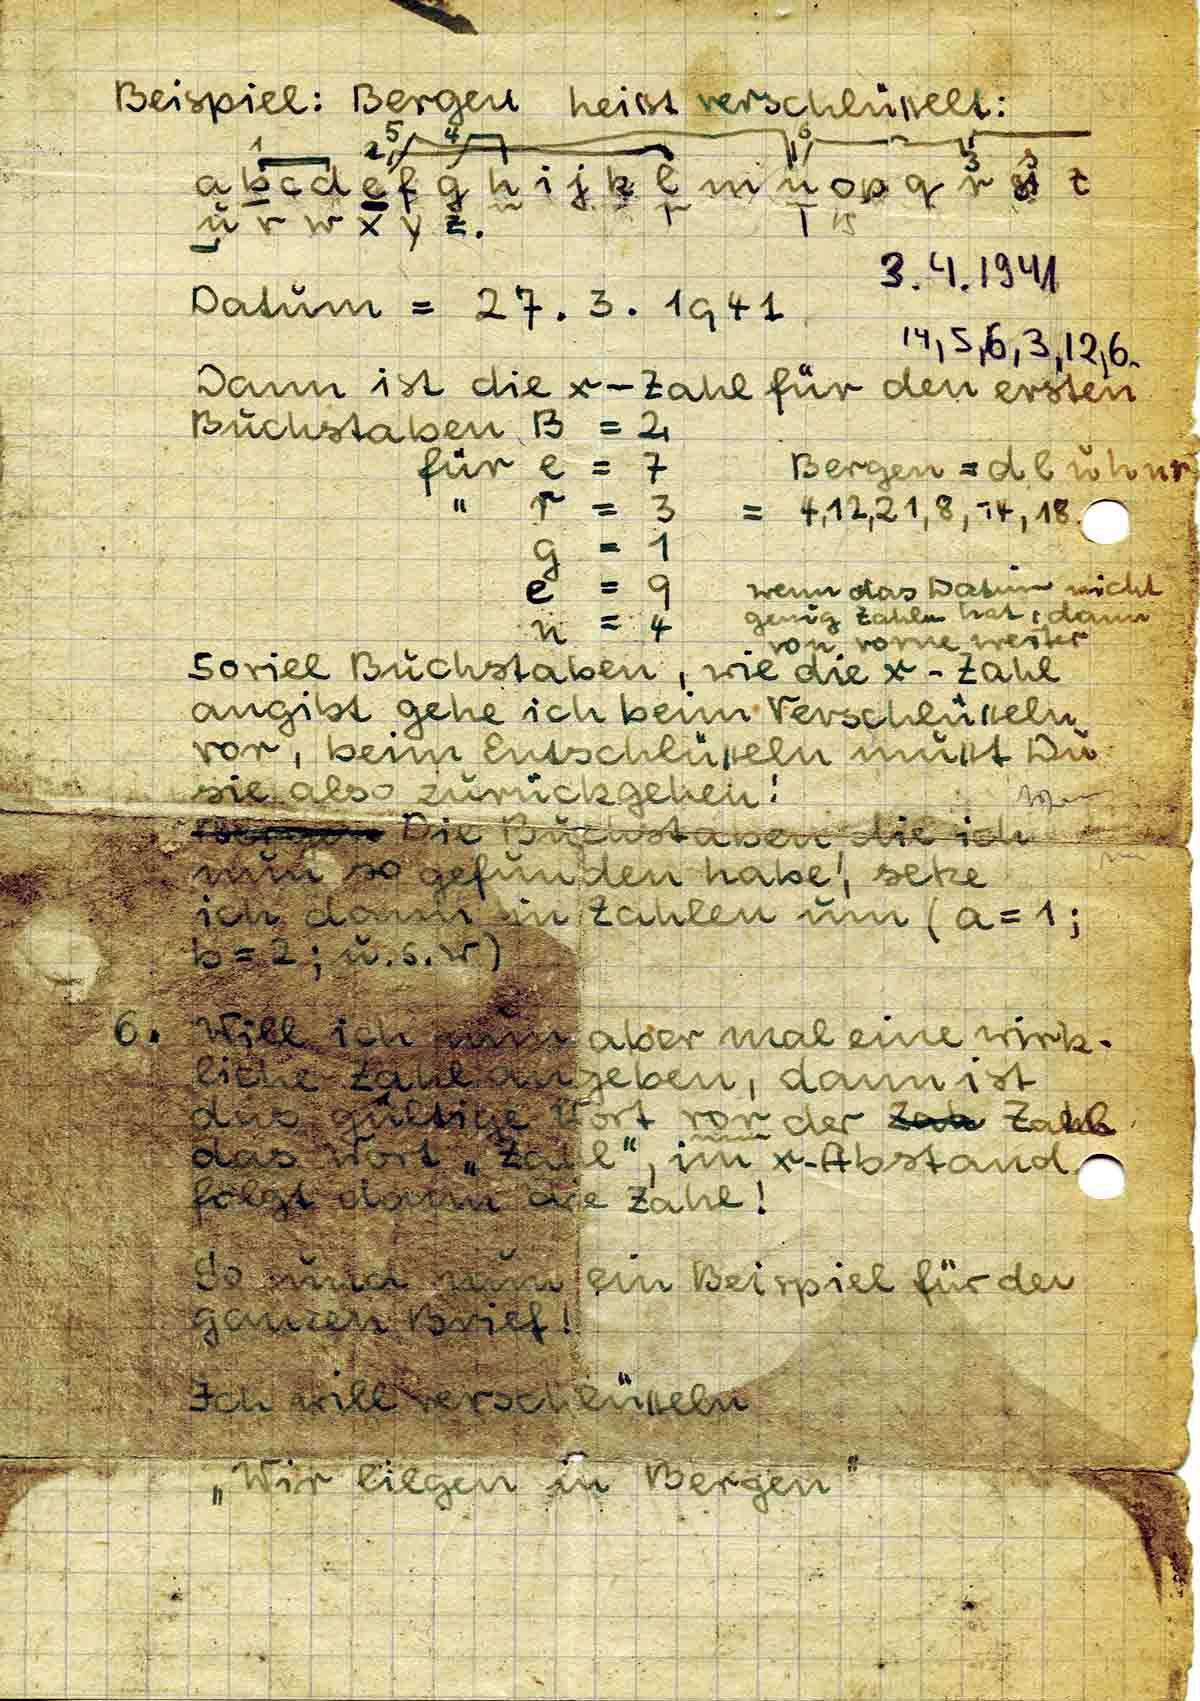 Beispiel: Bergen heißt verschlüsselt:
1 2 5 4 6 3
a b c d e f g h i j k l m n o p q r s t
u v w x y z.
3.4.1941
Datum = 27. 3. 1941
14,5,6,3,12,6.
Dann ist die x-Zahl für den ersten
Buchstaben B = 2
für e = 7 Bergen = d l u h n r
" r = 3 = 4,12,21,8,14,18.
g = 1
e = 9 wenn das Datum nicht
genug Zahlen hat, dann
n = 4 von vorne weiter
Soviel Buchstaben, wie die x-Zahl
angibt gehe ich beim Verschlüsseln
vor, beim Entschlüsseln mußt Du
sie also zurückgehen!
Die Buchstaben die ich
nun so gefunden habe!, setze
ich dann in Zahlen um (a=1;
b=2; u.s.w)
6. Will ich nun aber mal eine wirk-
liche Zahl angeben, dann ist
das gültige Wort vor der Zahl
das Wort „Zahl", im x-Abstand
folgt dann die Zahl!
So und nun ein Beispiel für den
ganzen Brief!
Ich will verschlüsseln
„Wir liegen in Bergen"